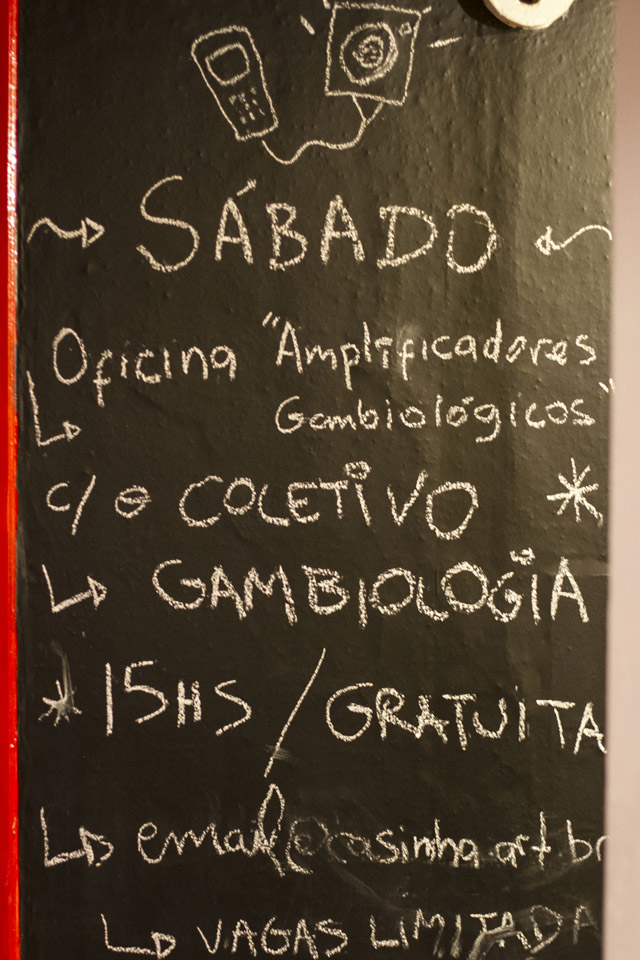 SÁBADO
Oficina "Amplificadores
Gambiológicos"
c/ o COLETIVO *
GAMBIOLOGIA
* 15HS / GRATUITA
email@casinha.art.br
VAGAS LIMITADA